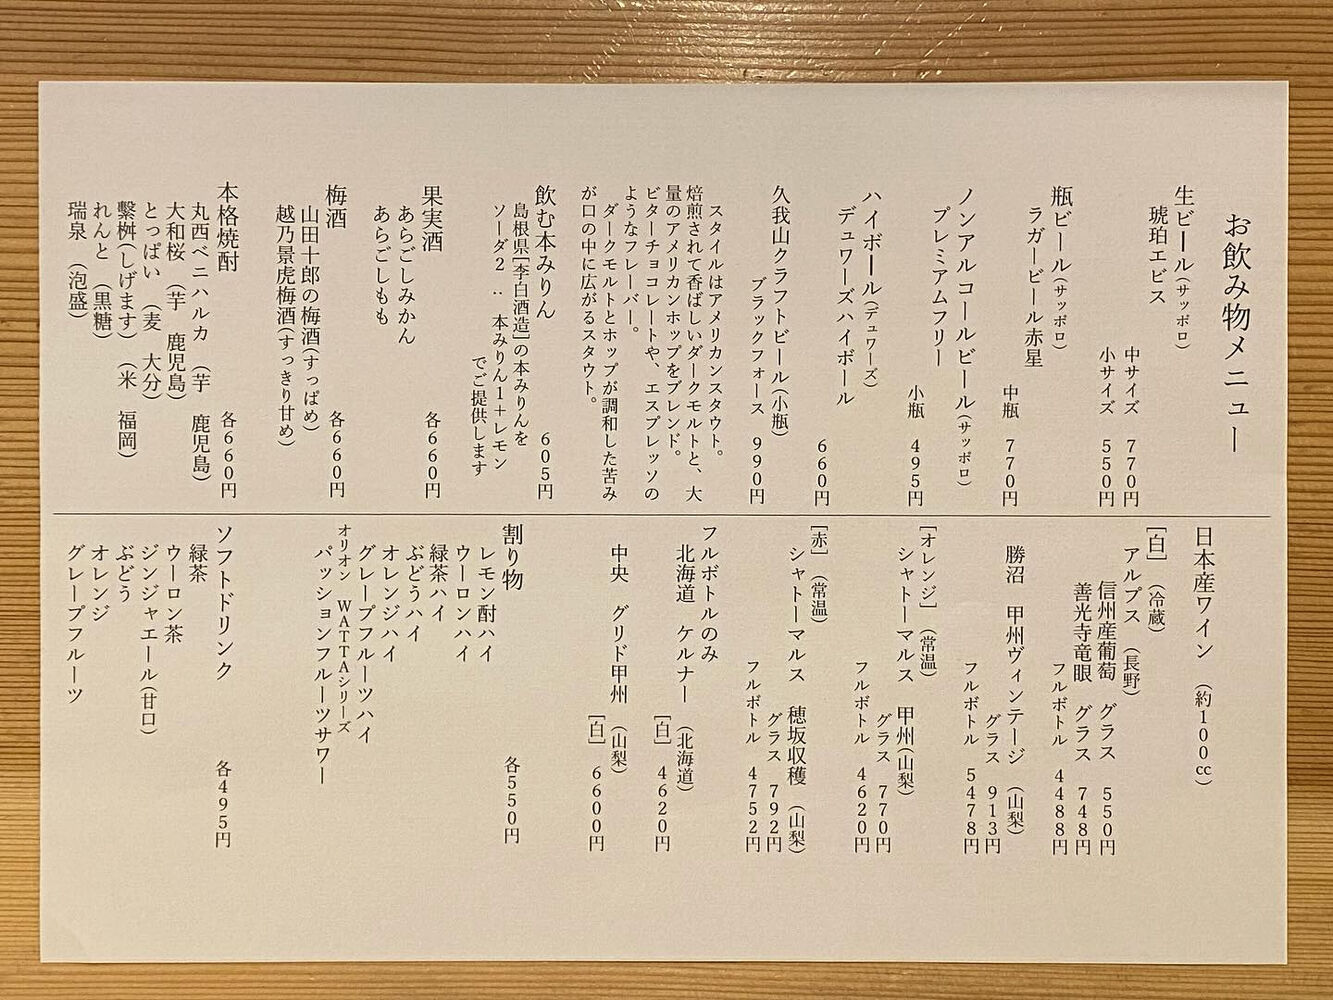 お飲み物メニュー
生ビール(サッポロ)
琥珀エビス
中サイズ 770円
小サイズ 550円
瓶ビール(サッポロ)
ラガービール赤星
中瓶 770円
ノンアルコールビール(サッポロ)
プレミアムフリー
小瓶 495円
ハイボール(デュワーズ)
デュワーズハイボール
660円
久我山クラフトビール(小瓶)
ブラックフォース 990円
スタイルはアメリカンスタウト。
焙煎されて香ばしいダークモルトと、大
量のアメリカンホップをブレンド。
ビターチョコレートや、エスプレッソの
ようなフレーバー。
ダークモルトとホップが調和した苦み
が口の中に広がるスタウト。
飲む本みりん 605円
島根県[李白酒造]の本みりんを
ソーダ2:本みりん1+レモン
でご提供します
果実酒 各660円
あらごしみかん
あらごしもも
梅酒 各660円
山田十郎の梅酒(すっぱめ)
越乃景虎梅酒(すっきり甘め)
本格焼酎 各660円
丸西ベニハルカ (芋 鹿児島)
大和桜 (芋 鹿児島)
とっぱい (麦 大分)
繫桝(しげます) (米 福岡)
れんと (黒糖)
瑞泉 (泡盛)
日本産ワイン (約100cc)
[白] (冷蔵)
アルプス (長野)
信州産葡萄 グラス 550円
善光寺竜眼 グラス 748円
フルボトル 4488円
勝沼 甲州ヴィンテージ (山梨)
グラス 913円
フルボトル 5478円
[オレンジ] (常温)
シャトーマルス 甲州(山梨)
グラス 770円
フルボトル 4620円
[赤] (常温)
シャトーマルス 穂坂収穫 (山梨)
グラス 792円
フルボトル 4752円
フルボトルのみ
北海道 ケルナー (北海道)
[白] 4620円
中央 グリド甲州 (山梨)
[白] 6600円
割り物 各550円
レモン酎ハイ
ウーロンハイ
緑茶ハイ
ぶどうハイ
オレンジハイ
グレープフルーツハイ
オリオン WATTAシリーズ
パッションフルーツサワー
ソフトドリンク 各495円
緑茶
ウーロン茶
ジンジャエール(甘口)
ぶどう
オレンジ
グレープフルーツ